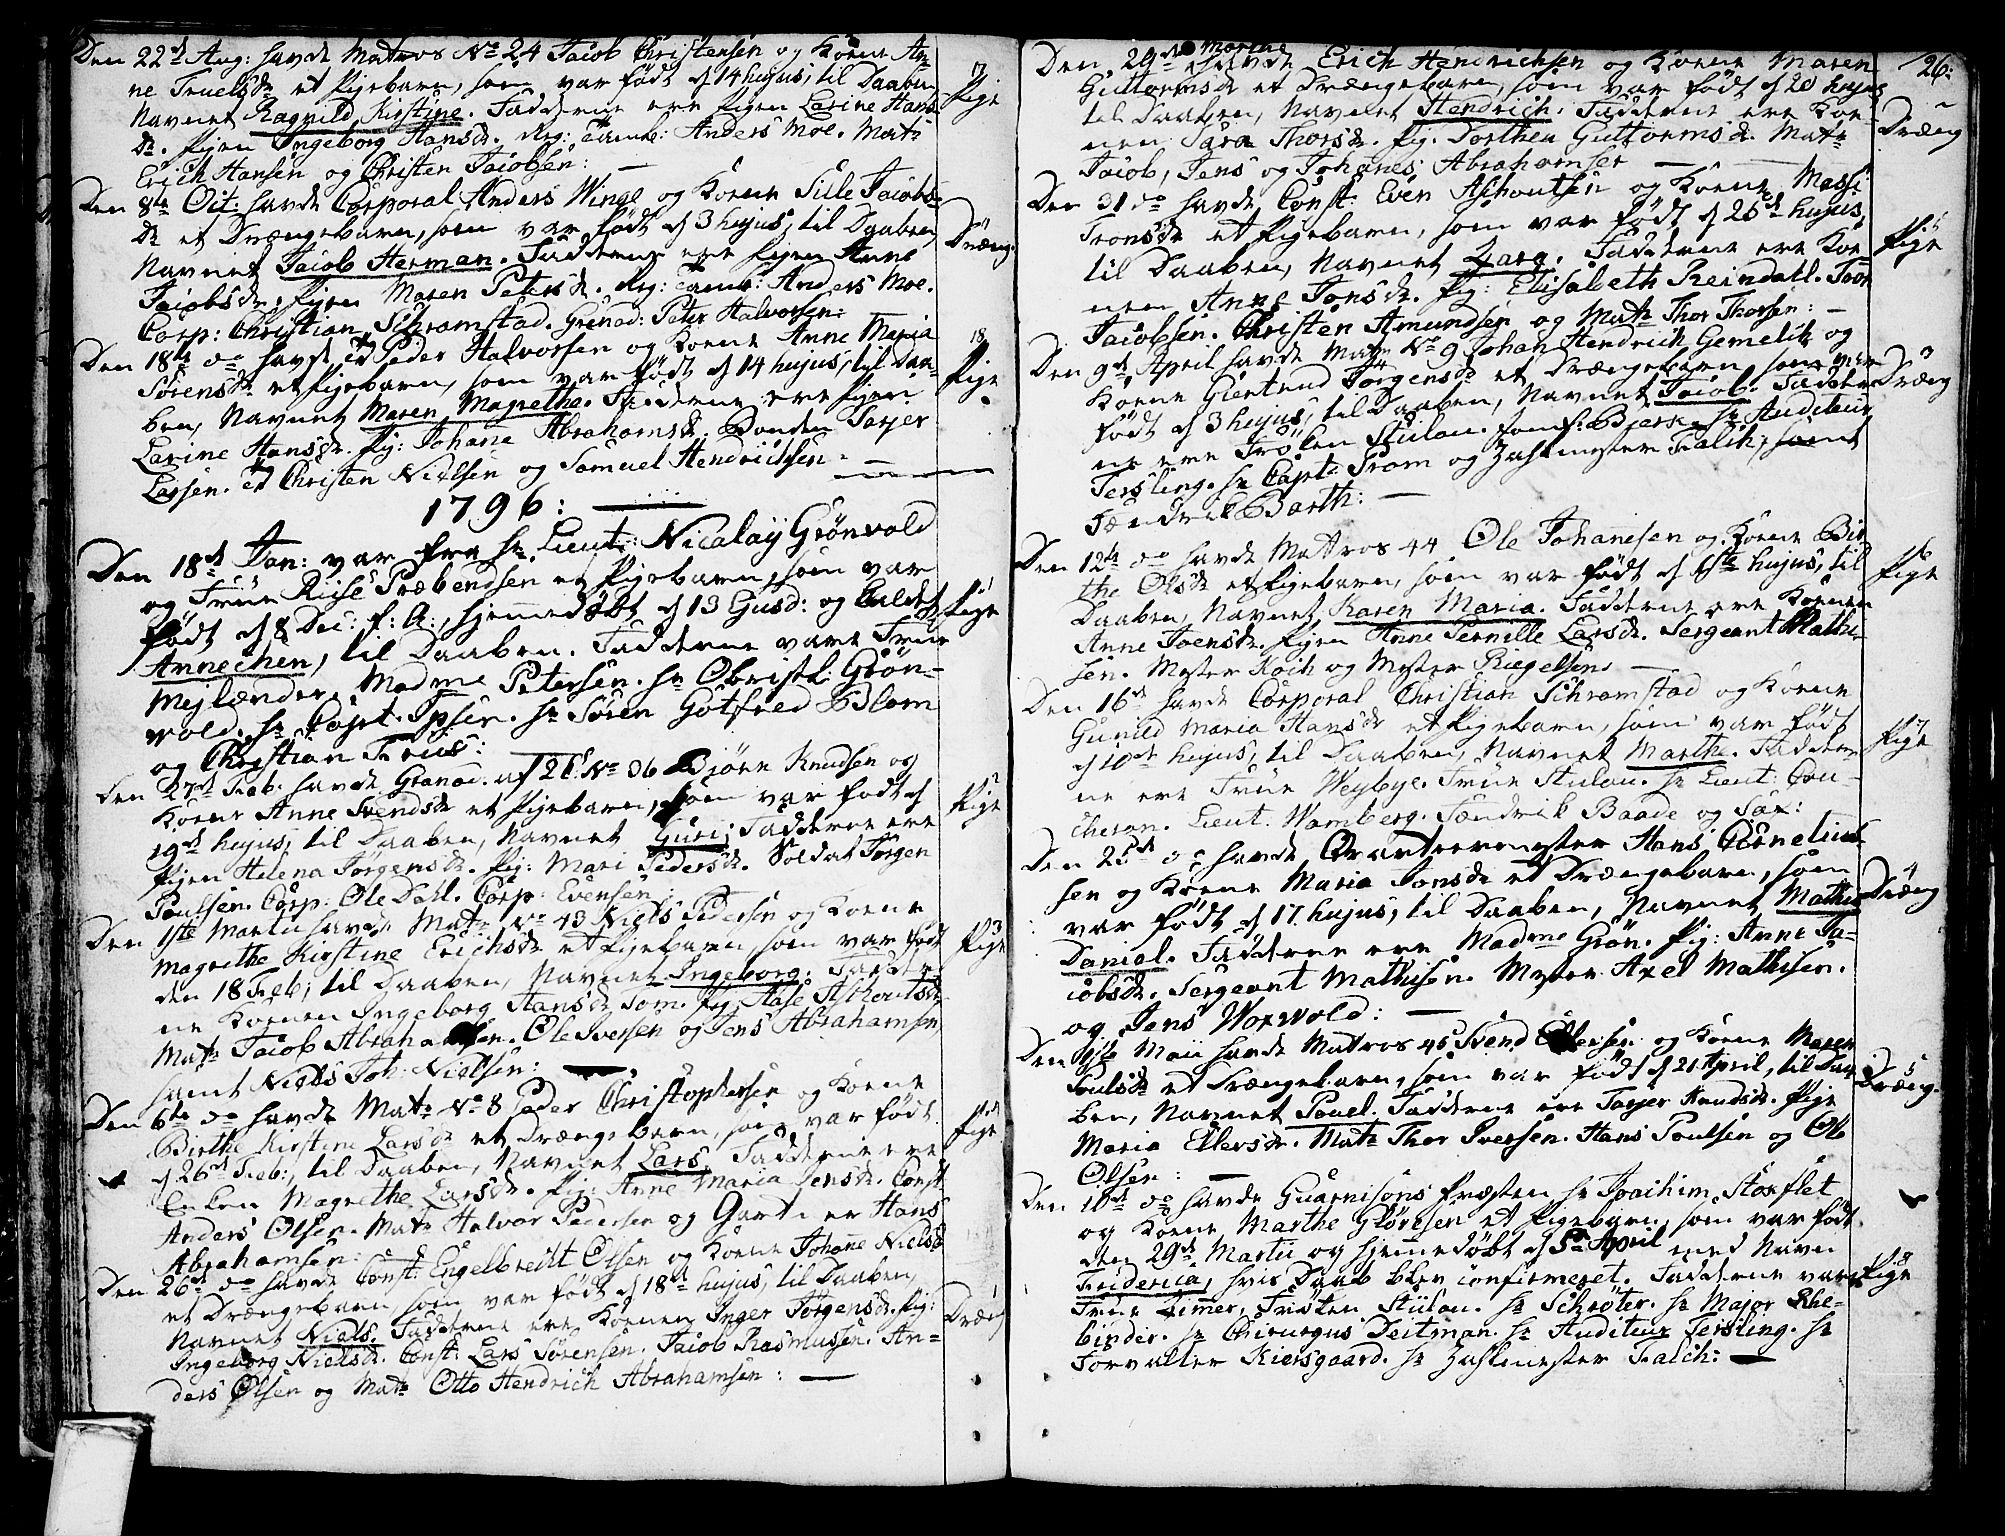 Den 22d Aug: havde Matros No 24 Jacob Christensen og Konen An-
ne Truelsdr et Pigebarn, som var født d 14 hujus, til Daaben,
Navnet Ragnild Kirstine. Fadderne ere Pigen Larine Hans-
dr. Pigen Ingeborg Hansdr. Reg: Tamb: Anders Moe. Matr
Erich Hansen og Christen Jacobsen:
17
Pige
Den 8de Oct: havde Corporal Anders Winge og Konen Sille Jacobs-
dr et Drængebarn, som var født d 3 hujus, til Daaben,
Navnet Jacob Herman. Fadderne ere Pigen Anne
Jacobsdr, Pigen Maren Petersdr. Reg: Tamb: Anders Moe.
Corp: Christian Schramstad. Grenad: Peter Halvorsen:
Dræng.
Den 18de do havde Peder Halvorsen og Konen Anne Maria
Sørensdr et Pigebarn, som var født d 14 hujus, til Daa-
ben, Navnet Maren Magrethe. Fadderne ere Pigen
Larine Hansdr. Pig: Johane Abrahamsdr. Bonden Tarjer
Larsen. Christen Nielsen og Samuel Hendrichsen.
18
Pige
1796:
Den 18d Jan: var fra Hr Lieut: Nicolay Grönvold
og Frue Riise Præbendsen et Pigebarn, som var
født d 8 Dec: f: A:, hjemmedøbt d 13 Ejusd: og kaldet
Annechen, til Daaben. Fadderne vare Frue
Mejlænder, Madme Petersen. Hr Obristl: Grön-
vold, Hr Capt. Ipsen. Hr Søren Gotfred Blom
og Christian Friis:
1
Pige
Den 27d Feb: havde Granad. af 2 C: No 36 Bjørn Knudsen og
Konen Anne Svendsdr et Pigebarn, som var født d
19d hujus, til Daaben, Navnet Guri. Fadderne ere
Pigen Helena Jørgensdr. Pig: Mari Pedersdr. Soldat Jørgen
Poulssen. Corp: Ole Dahl. Corp: Evensen:
2
Pige
Den 1ste Martii havde Matr No 43 Niels Pedersen og Konen
Magrethe Kirstine Erichsdr et Pigebarn, som var født
den 18 Feb; til Daaben, Navnet Ingeborg: Fadder-
ne Konen Ingeborg Hansdr Som. Pig: Aase Ashoutsdr
Matr Jacob Abrahamsen. Ole Iversen og Jens Abrahamsen,
samt Niels Joh: Nielsen:
3
Pige
Den 6te do havde Matr No 8 Peder Christophersen og Konen
Birthe Kirstine Larsdr et Drængebarn, som var født
d 26de Feb:, til Daaben, Navnet Lars. Fadderne ere
Enken Magrethe Larsdr. Pig: Anne Maria Jensdr. Const:
Anders Olsen. Matr Halvor Pedersen og Gartner Hans
Abrahamsen:
4
Pige
Den 26de do havde Const: Engelbrecht Olsen og Konen Johanne Nielsdr
et Drængebarn, som var født d 18de hujus, til Daaben,
Navnet Niels. Fadderne ere Konen Inger Jørgensdr. Pig:
Ingeborg Nielsdr. Const: Lars Sørensen. Jacob Rasmussen. An-
ders Olsen og Matr Otto Hendrich Abrahamsen:
1
Dræng
26:
Den 29de havde Marine Erich Hendrichsen og Konen Maren
Guttormsdr et Drængebarn, som var født d 20 hujus,
til Daaben, Navnet Hendrich. Fadderne ere Ko-
nen Sara Thorsdr. Pig: Dorthea Guttormsdr. Matr
Jacob, Jens og Johanes Abrahamsen
2
Dræng
Den 31 do havde Const: Even Ashoutsen og Konen Massi
Tronsdr et Pigebarn, som var født d 25d hujus,
til Daaben, Navnet Zara. Fadderne ere Ko-
nen Anne Jonsdr. Pig: Elisabeth Reindall. Thor
Jacobsen. Christen Amundsen og Matr Thor Thorsen:
5
Pige
Den 9de April havde Matr No 9 Johan Hendrich Gemelik og
Konen Giertrud Jørgensdr et Drængebarn, som var
født d 3 hujus, til Daaben, Navnet Jacob. Fadder-
ne ere Frøken Stülau. Jomf: Bjerk. Hr Auditeur
Fersling. Hr Capt: Pram og Zahlmester Falch, samt
Fændrik Barth:
3
Dræng
Den 12te do havde Matros 44 Ole Johanesen og Konen Bir-
the Olsdr et Pigebarn, som var født d hujus, til
Daaben, Navnet Karen Maria. Fadderne ere Konen
Anne Joensdr. Pigen Anne Pernille Larsdr. Sergeant Mathi-
sen. Mester Koch og Mester Riegelsen
6
Pige
Den 16d havde Corporal Christian Schramstad og Konen
Gunild Maria Hansdr et Pigebarn, som var født
d 10de hujus, til Daaben, Navnet Marthe. Fadder-
ne ere Frue Weybye. Frue Stulau. Hr Lieut: Cou-
cheron. Lieut. Wamberg. Fændrik Baade og Fax:
7
Pige
Den 25d do havde Qvarteermester Hans Cornelius-
sen og Konen Maria Jonsdr et Drængebarn, som
var født d 17 hujus, til Daaben, Navnet Mathis
Daniel. Fadderne ere Madme Grön. Pig: Anne Ja-
cobsdr. Sergeant Mathisen. Mester Axel Mathisen.
og Jens Worvold:
4
Dræng
Den 1ste Maii havde Matros 45 Svend Ellevsen og Konen Maren
Poulsdr et Drængebarn, som var født d 21 April, til Daa-
ben, Navnet Pouel. Fadderne ere Tarjer Knudsdr. Pige
Maria Ellevsdr. Matr Thor Iversen. Hans Poulsen og Ole
Olsen:
5
Dræng.
Den 10d do havde Guarnisons Præsten Hr Joachim Stoxflet
og Konen Marthe Glörfsen et Pigebarn, som var født
den 29d Martii og hjemmedøbt d 5te April med Navn
Friderica, hvis Daab blev confirmeret. Fadderne vare
Frue Zimmer, Frøken Stülau. Hr Schrøter. Hr Major Rhe-
binder. Hr Chirurgus Deitman. Hr Auditeur Fersling. Hr
Forvalter Kiersgaard. Hr Zahlmester Falch:
8
Pige